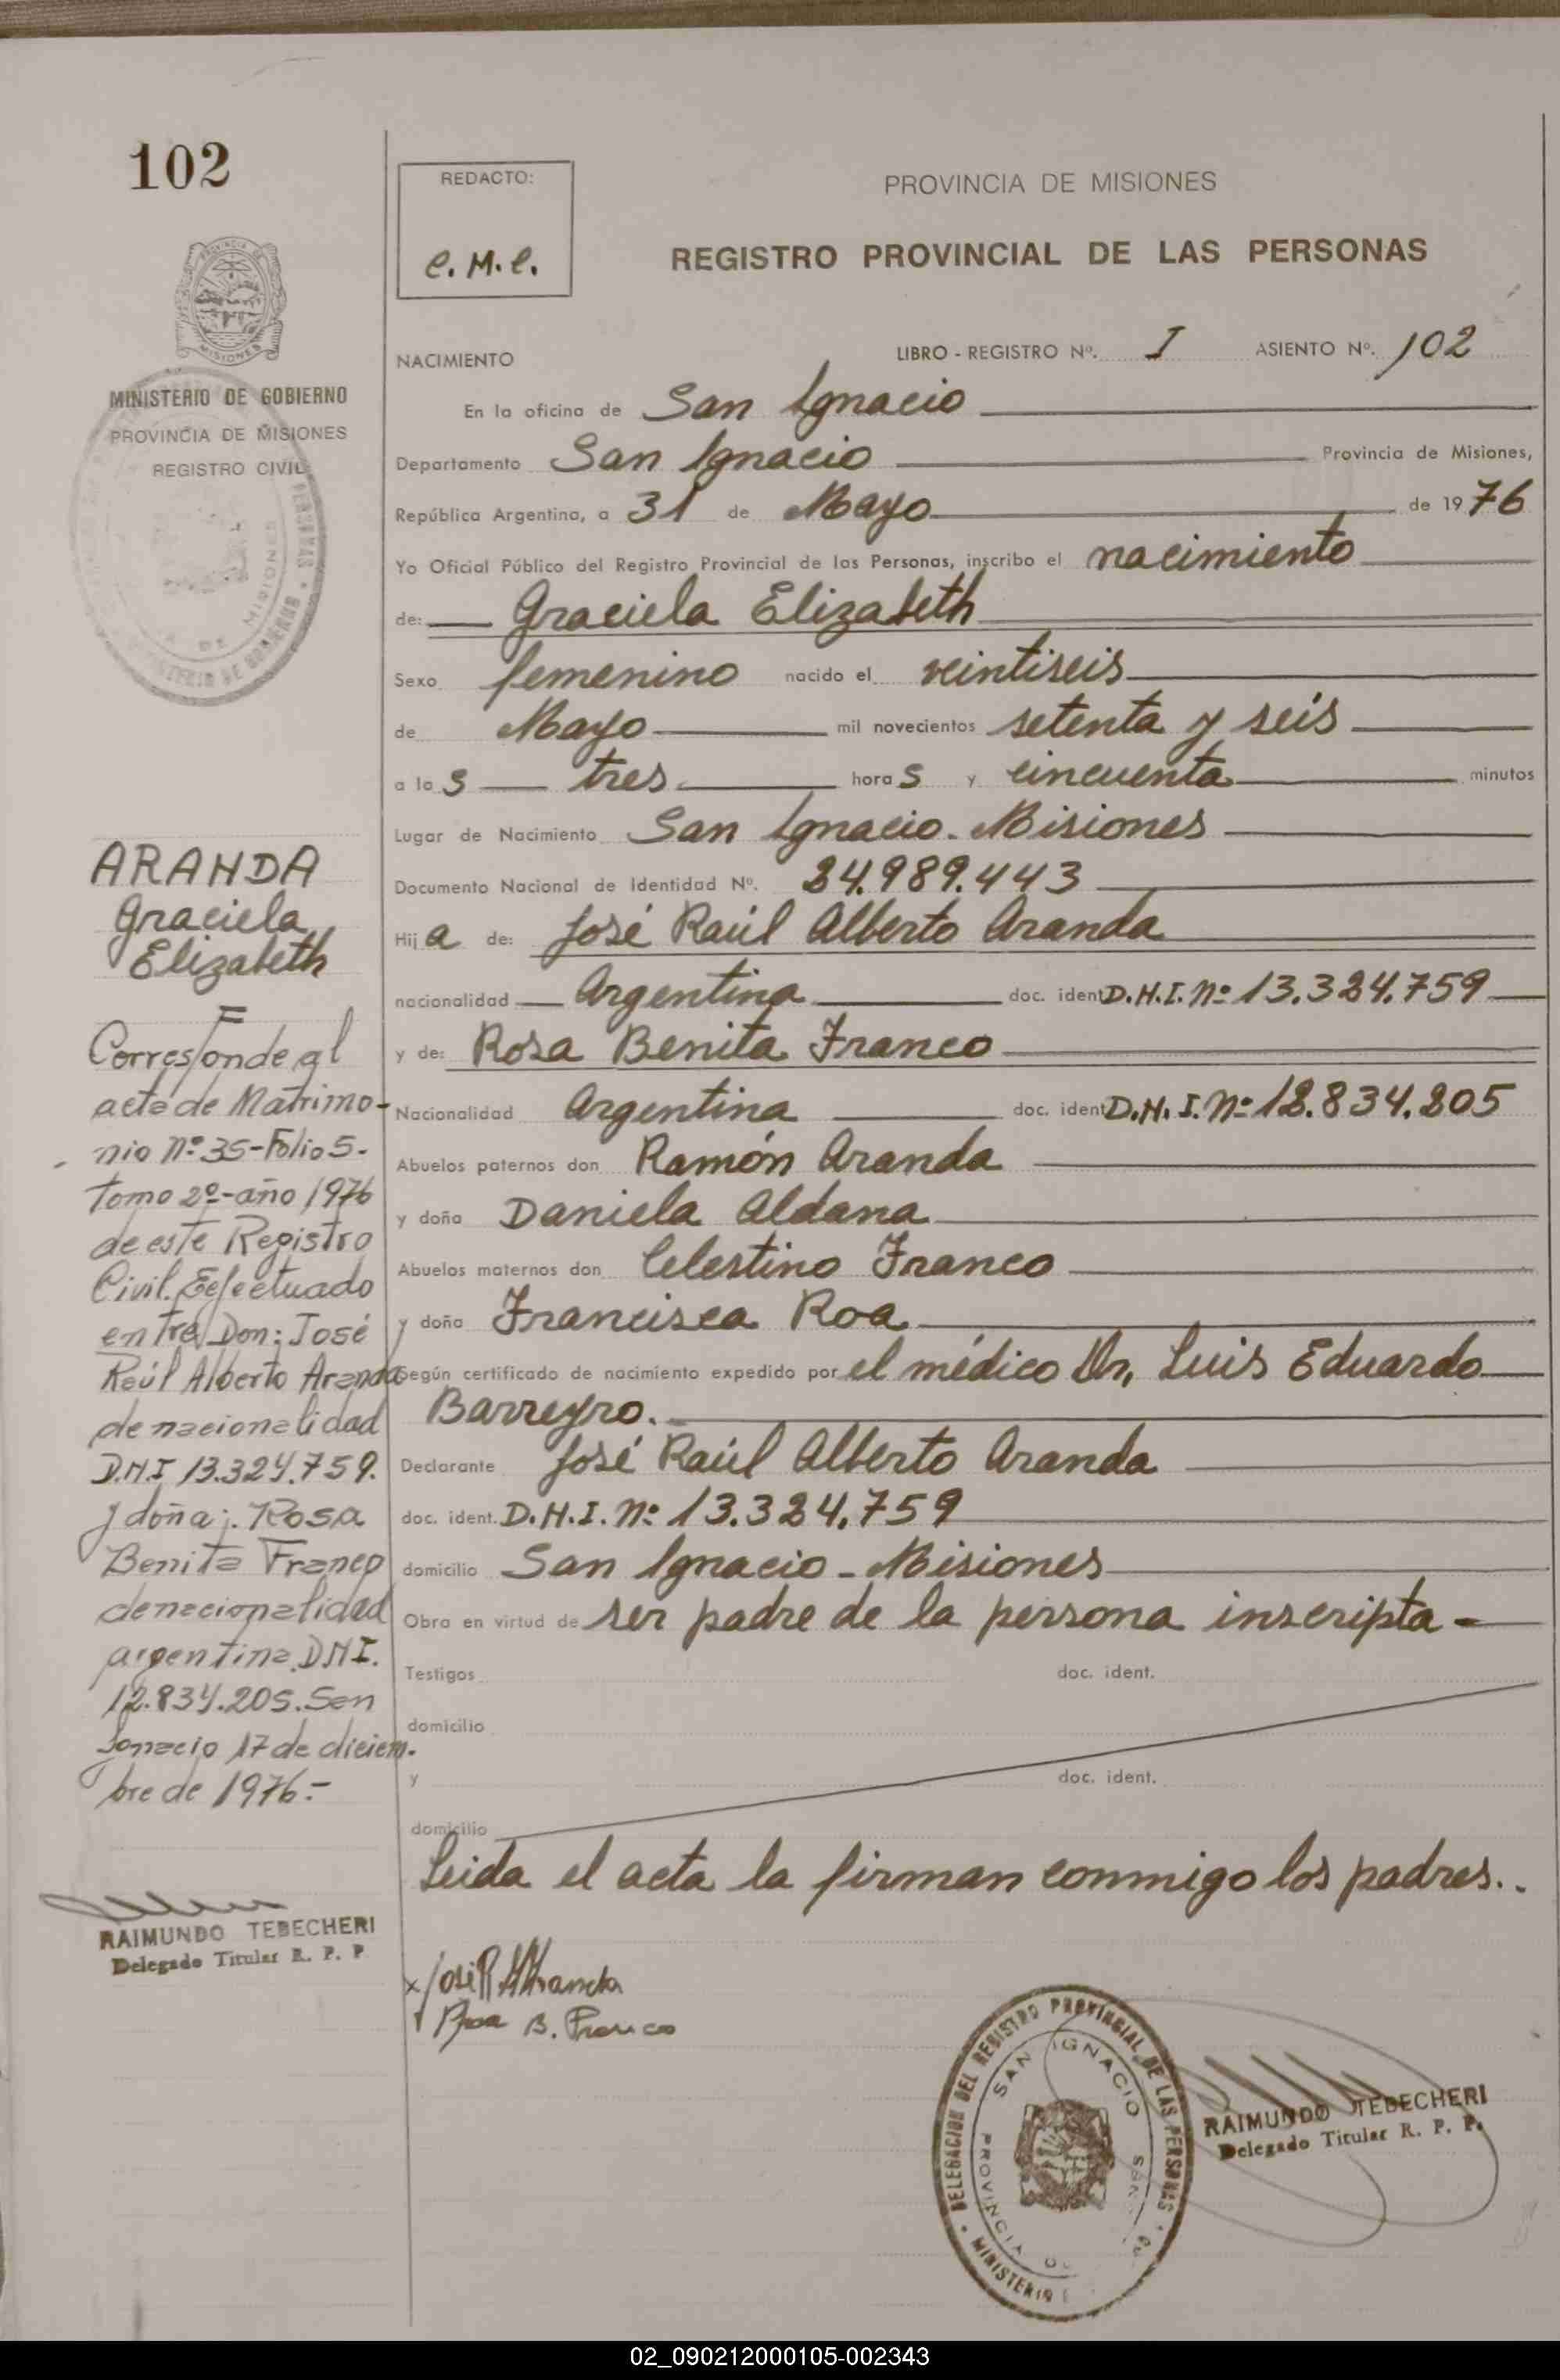 102
REDACTO:
C.M.C.
PROVINCIA DE MISIONES
REGISTRO PROVINCIAL DE LAS PERSONAS
NACIMIENTO LIBRO - REGISTRO Nº. I ASIENTO Nº. 102
En la oficina de San Ignacio
Departamento San Ignacio Provincia de Misiones,
República Argentina, a 31 de Mayo de 1976
Yo Oficial Público del Registro Provincial de las Personas, inscribo el nacimiento
de: Graciela Elizabeth
Sexo femenino nacido el veintiseis
de Mayo mil novecientos setenta y seis
a las tres horas y cincuenta minutos
Lugar de Nacimiento San Ignacio - Misiones
Documento Nacional de Identidad Nº. 24.989.443
Hija de: José Raúl Alberto Aranda
nacionalidad Argentina doc. ident. D.N.I. Nº 13.324.759
y de: Rosa Benita Franco
Nacionalidad Argentina doc. ident. D.N.I. Nº 12.834.205
Abuelos paternos don Ramón Aranda
y doña Daniela Aldana
Abuelos maternos don Celestino Franco
y doña Francisca Roa
Según certificado de nacimiento expedido por el médico Dr. Luis Eduardo
Barreyro.
Declarante José Raúl Alberto Aranda
doc. ident. D.N.I. Nº 13.324.759
domicilio San Ignacio - Misiones
Obra en virtud de ser padre de la persona inscripta -
Testigos doc. ident.
domicilio
y doc. ident.
domicilio
Leida el acta la firman conmigo los padres..
Rosa B. Franco
DELEGACION DEL REGISTRO PROVINCIAL DE LAS PERSONAS
SAN IGNACIO
PROVINCIA
MINISTERIO
RAIMUNDO TEBECHERI
Delegado Titular R. P. P.
PROVINCIA DE
MISIONES
MINISTERIO DE GOBIERNO
PROVINCIA DE MISIONES
REGISTRO CIVIL
ARANDA
Graciela
Elizabeth
=
Corresponde al
acta de Matrimo-
nio Nº 35-Folio 5-
tomo 2º-año 1976
de este Registro
Civil. Efectuado
entre Don: José
Raúl Alberto Aranda
de nacionalidad
D.N.I 13.324.759.
y doña: Rosa
Benita Franco
de nacionalidad
argentina. DNI.
12.834.205. San
Ignacio 17 de diciem-
bre de 1976.-
RAIMUNDO TEBECHERI
Delegado Titular R. P. P
02_090212000105-002343